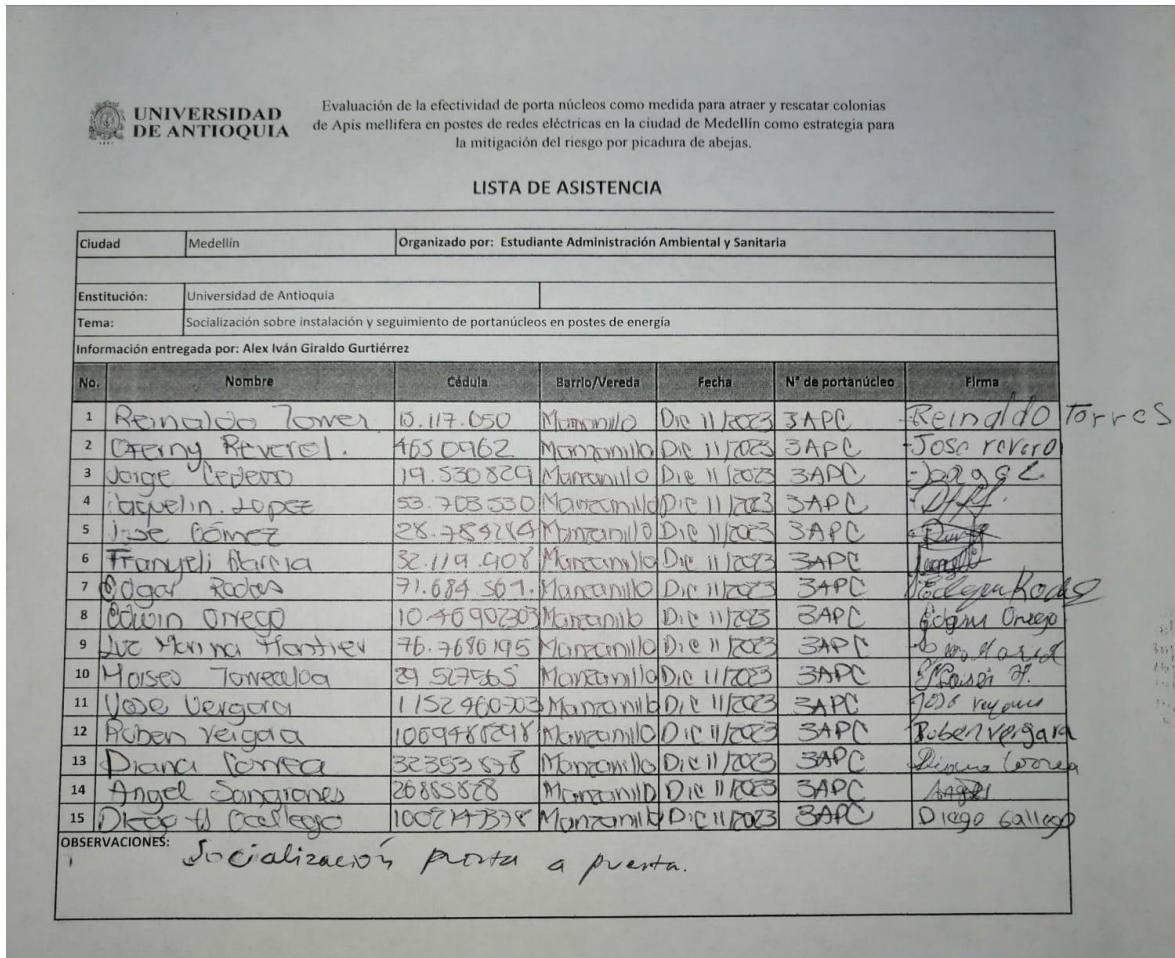 UNIVERSIDAD
DE ANTIOQUIA
Evaluación de la efectividad de porta núcleos como medida para atraer y rescatar colonias
de Apis mellifera en postes de redes eléctricas en la ciudad de Medellín como estrategia para
la mitigación del riesgo por picadura de abejas.
LISTA DE ASISTENCIA
Ciudad Medellín Organizado por: Estudiante Administración Ambiental y Sanitaria
Enstitución: Universidad de Antioquia
Tema: Socialización sobre instalación y seguimiento de portanúcleos en postes de energía
Información entregada por: Alex Iván Giraldo Gurtiérrez
No. Nombre Cédula Barrio/Vereda Fecha N° de portanúcleo Firma
1 Reinaldo Torres 10.117.050 Manzanillo Dic 11/2023 3APC Reinaldo Torres
2 Reverol. 4650962 Manzanillo Dic 11/2023 3APC Jose
3 Jorge Cedeno 19.530829 Manzanillo Dic 11/2023 3APC
4 Lopez 53.703530 Manzanillo Dic 11/2023 3APC
5 Jose Gómez 28.784284 Manzanillo Dic 11/2023 3APC
6 Franyeli Garcia 32.119.908 Manzanillo Dic 11/2023 3APC
7 Edgar Rodas Manzanillo Dic 11/2023 3APC Edgar Rodas
8 Edwin Orrego Manzanillo Dic 11/2023 3APC Orrego
9 Luz Marina Manzanillo Dic 11/2023 3APC
10 Manzanillo Dic 11/2023 3APC
11 Jose Vergara Manzanillo Dic 11/2023 3APC
12 Ruben Vergara Manzanillo Dic 11/2023 3APC Ruben Vergara
13 Diana Correa Manzanillo Dic 11/2023 3APC Diana Correa
14 Angel Sangrones Manzanillo Dic 11/2023 3APC Angel
15 Diego Gallego Manzanillo Dic 11/2023 3APC Diego Gallego
OBSERVACIONES: Socialización a puerta.